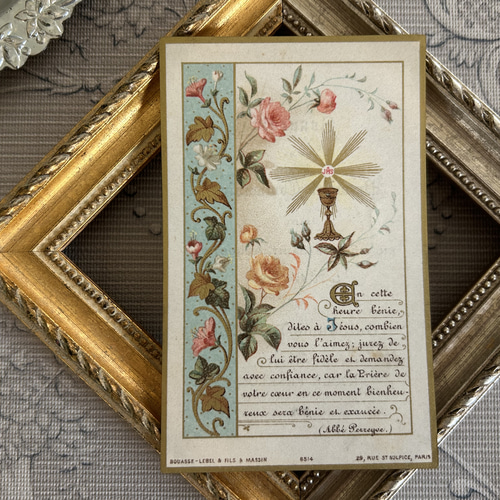 IHS
En cette
heure bénie,
dites à Jésus, combien
vous l'aimez; jurez de
lui être fidèle et demandez
avec confiance, car la Prière de
votre cœur en ce moment bienheu-
reux sera bénie et exaucée.
(Abbé Perreyve.)
BOUASSE-LEBEL & FILS & MASSIN 6514 29, RUE ST SULPICE, PARIS